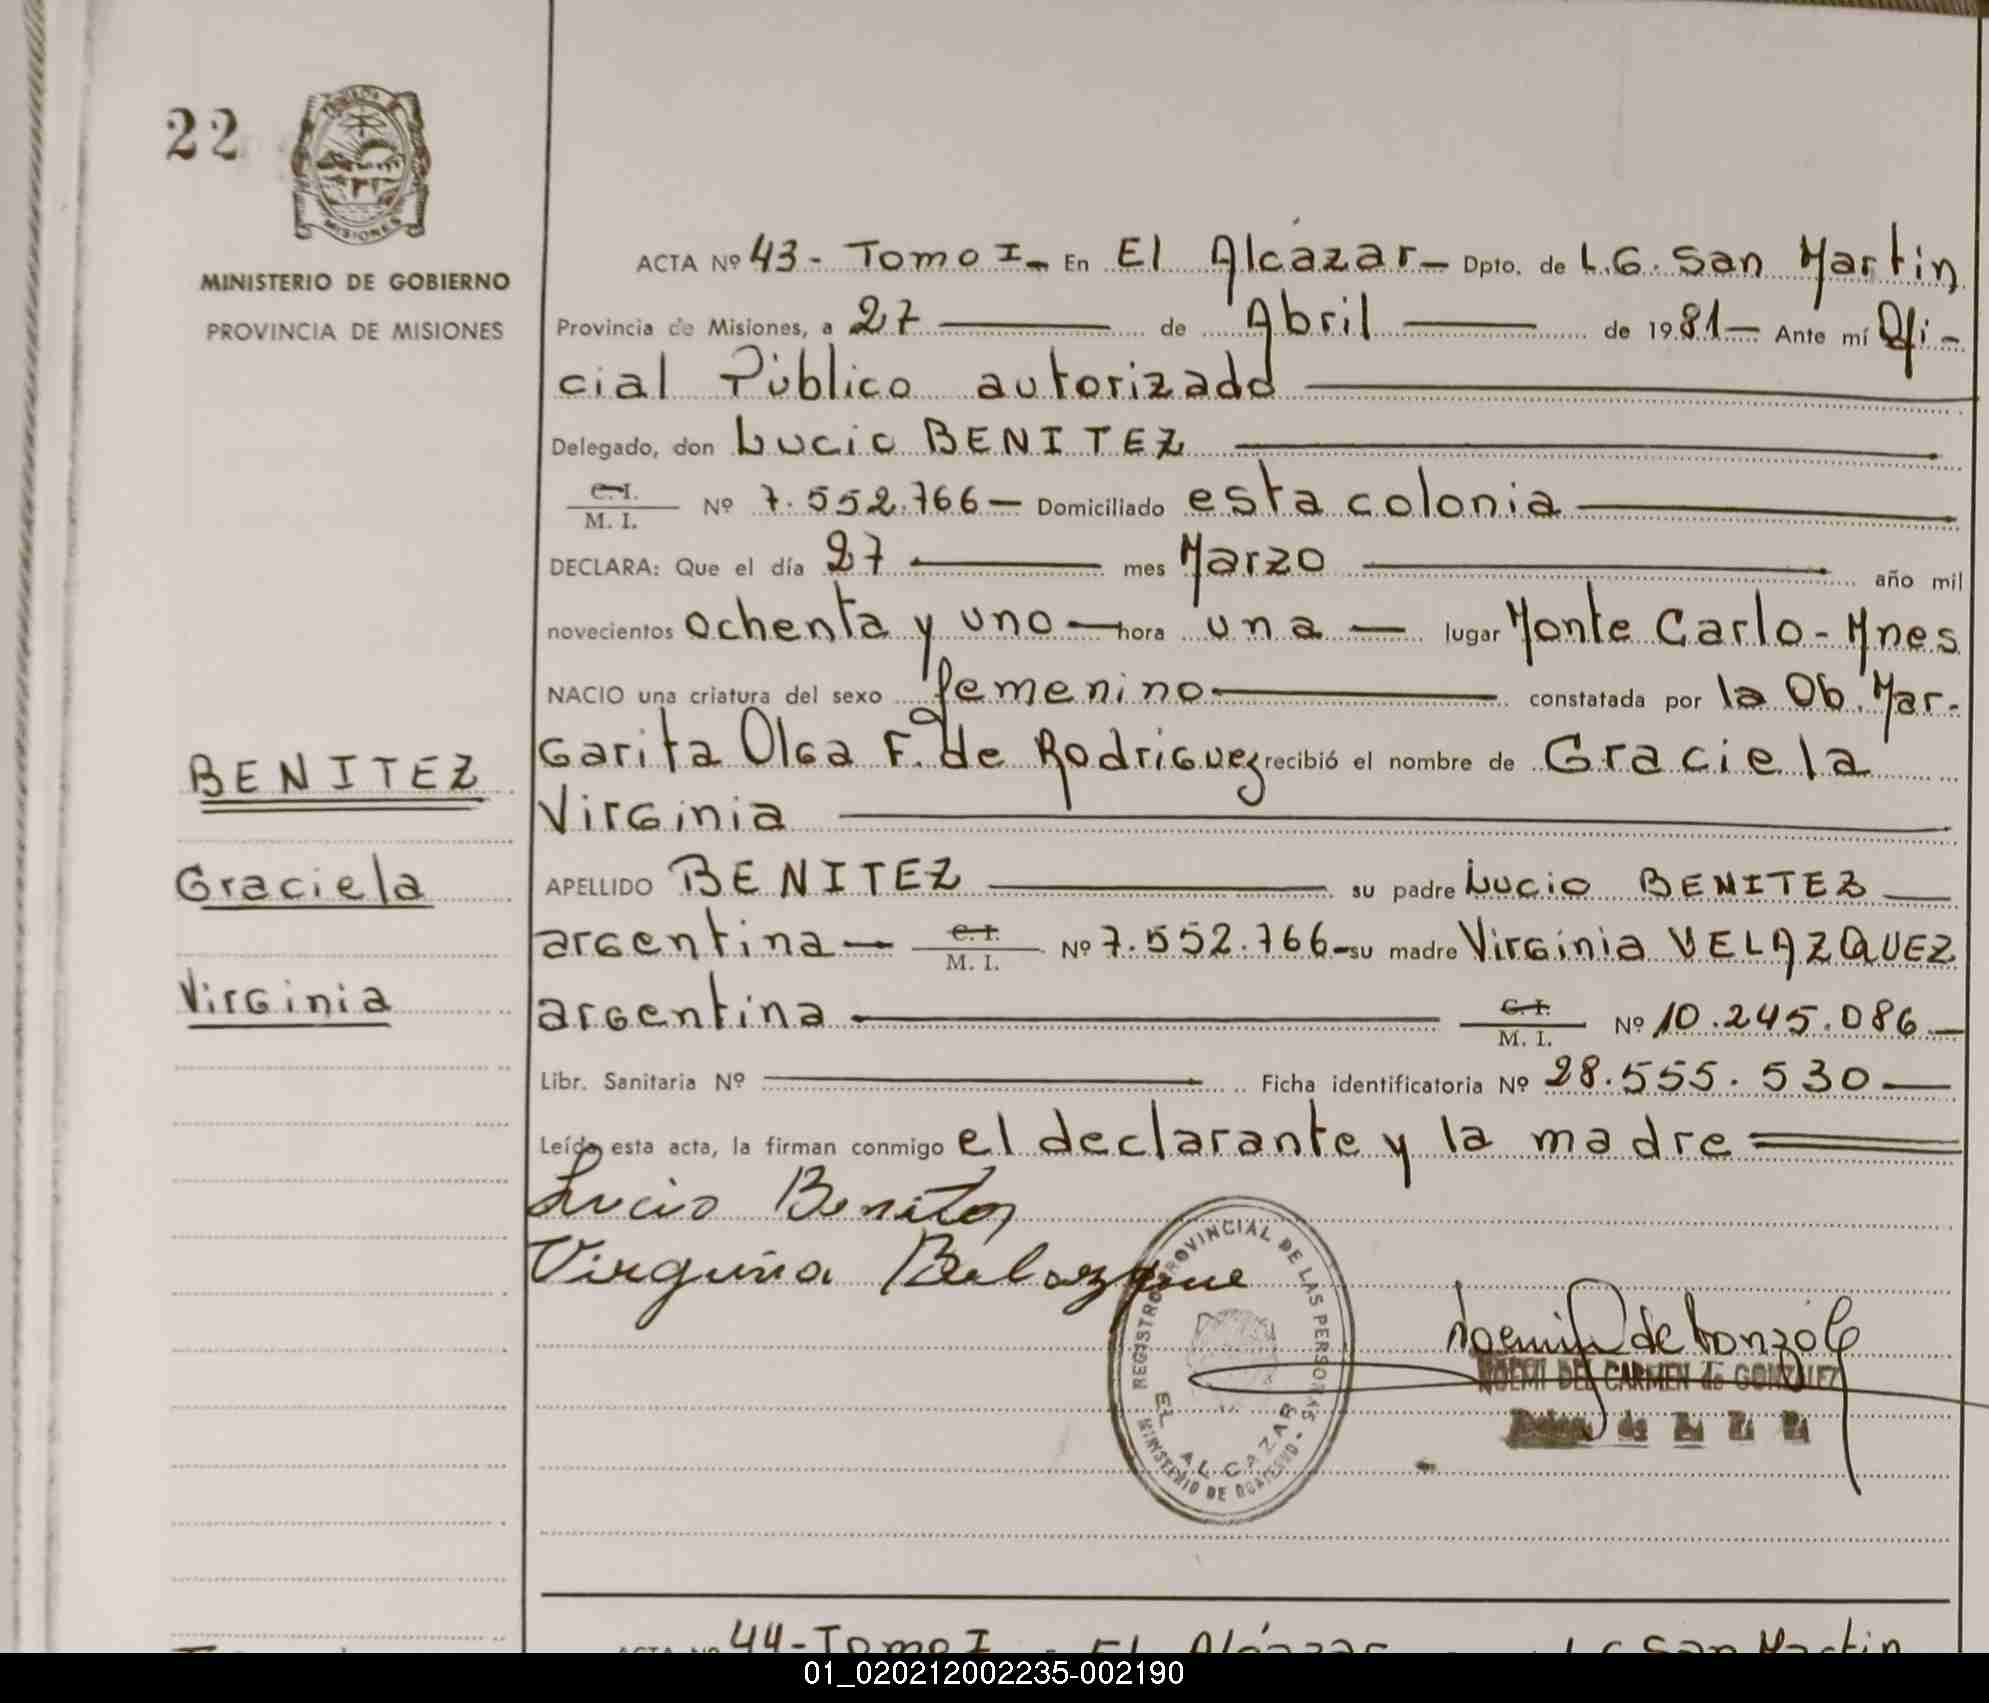 22
MISIONES
MINISTERIO DE GOBIERNO
PROVINCIA DE MISIONES
BENITEZ
Graciela
Virginia
ACTA Nº 43 - Tomo I - En El Alcázar - Dpto. de L.G. San Martin
Provincia de Misiones, a 27 de Abril de 1981 - Ante mí Ofi-
cial Público autorizado
Delegado, don Lucio BENITEZ
C. I.
M. I. Nº 7.552.766 - Domiciliado esta colonia
DECLARA: Que el día 27 mes Marzo año mil
novecientos ochenta y uno - hora una - lugar Monte Carlo - Mnes
NACIO una criatura del sexo femenino constatada por la Ob. Mar-
garita Olga F. de Rodriguez recibió el nombre de Graciela
Virginia
APELLIDO BENITEZ su padre Lucio BENITEZ
argentina - C. I. M. I. Nº 7.552.766 - su madre Virginia VELAZQUEZ
argentina C. I. M. I. Nº 10.245.086 -
Libr. Sanitaria Nº Ficha identificatoria Nº 28.555.530 -
Leída esta acta, la firman conmigo el declarante y la madre
Lucio Benitez
Virginia
REGISTRO PROVINCIAL DE LAS PERSONAS
EL ALCAZAR
MINISTERIO DE GOBIERNO -
NOEMI DEL CARMEN de GONZALEZ
44 - Tomo I El Alcázar L.G. San Martin
01_020212002235-002190